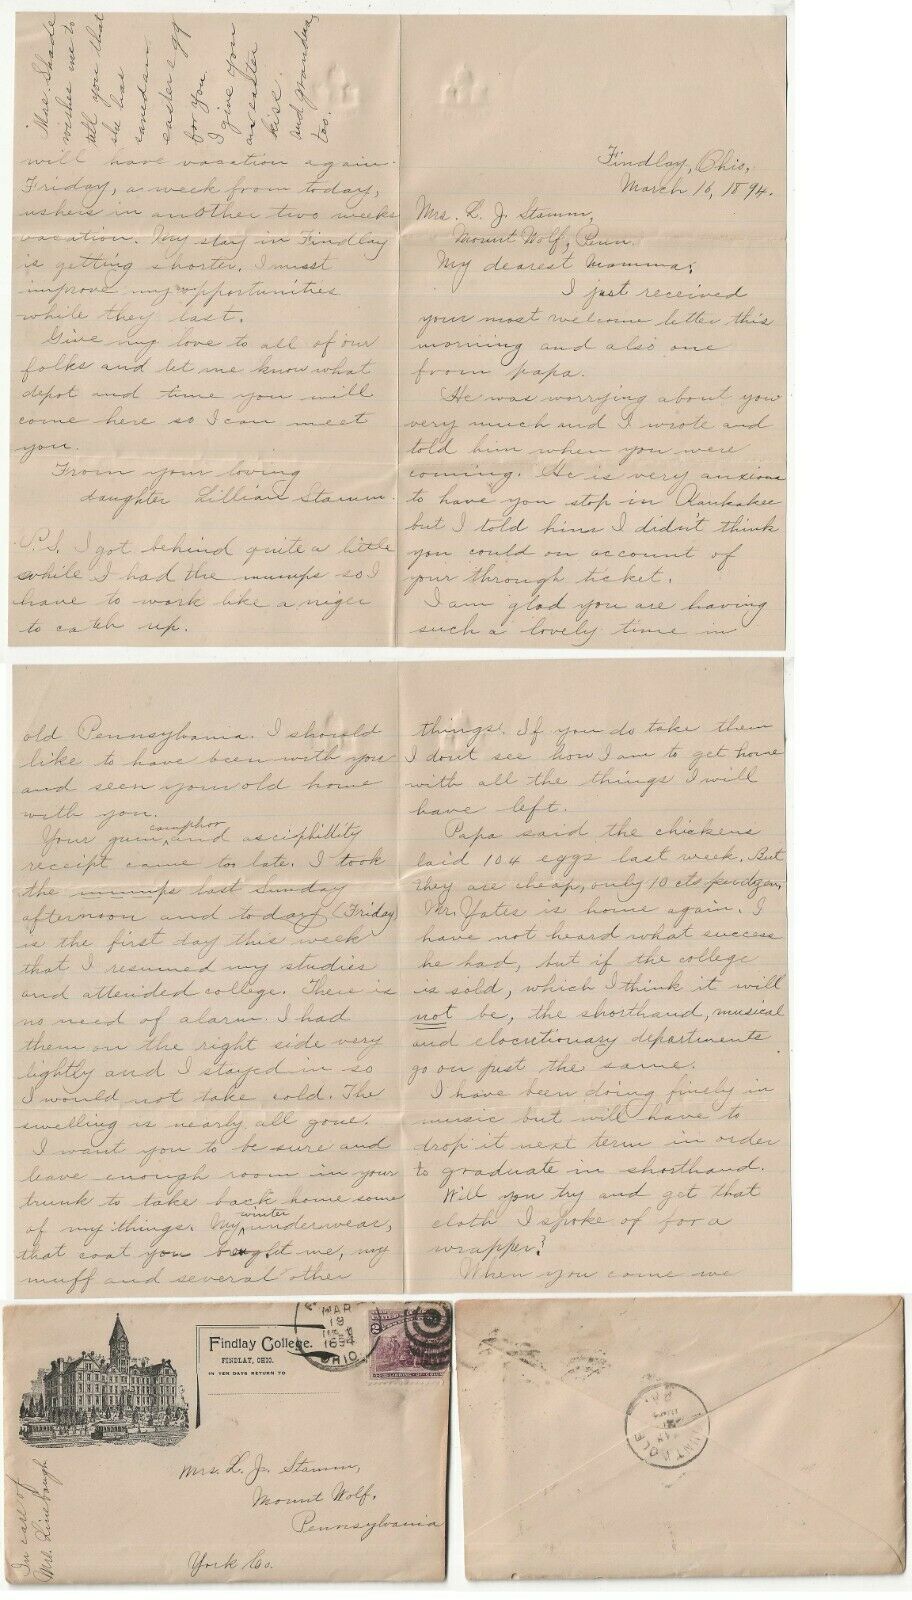 Findlay, Ohio,
March 16, 1894.
Mrs. L. J. Stamm,
Mount Wolf, Penn.
My dearest Momma:
I just received
your most welcome letter this
morning and also one
from papa.
He was worrying about you
very much and I wrote and
told him when you were
coming. He is very anxious
to have you stop in Kankakee
but I told him I didn't think
you could on account of
your through ticket.
I am glad you are having
such a lovely time in
old Pennsylvania. I should
like to have been with you
and seen your old home
with you.
Your gum camphor and asciphittity
receipt came to late. I took
the mumps last Sunday
afternoon and today (Friday)
is the first day this week
that I resumed my studies
and attended college. There is
no need of alarm. I had
them on the right side very
lightly and I stayed in so
I would not take cold. The
swelling is nearly all gone.
I want you to be sure and
leave enough room in your
trunk to take back home some
of my things. My winter underwear,
that coat you bought me, my
muff and several other
things. If you do take them
I dont see how I am to get home
with all the things I will
have left.
Papa said the chickens
laid 104 eggs last week. But
they are cheap, only 10 cts per dozen.
Mr. Yates is home again. I
have not heard what success
he had, but if the college
is sold, which I think it will
not be, the shorthand, musical
and elocutionary departments
go on just the same.
I have been doing finely in
music but will have to
drop it next term in order
to graduate in shorthand.
Will you try and get that
cloth I spoke of for a
wrapper?
When you come we
will have vacation again.
Friday, a week from today,
ushers in another two weeks
vacation. My stay in Findlay
is getting shorter. I must
improve my opportunities
while they last.
Give my love to all of our
folks and let me know what
depot and time you will
come here so I can meet
you.
From your loving
daughter Lillian Stamm.
P.S. I got behind quite a little
while I had the mumps so I
have to work like a niger
to catch up.
Mrs. Shade
wishes me to
tell you that
she has
easter egg
for you
I give you
an easter
kiss.
and grandma
too.
Findlay College.
FINDLAY, OHIO.
IN TEN DAYS RETURN TO
MAR
19
1894
OHIO
Mrs. L. J. Stamm,
Mount Wolf,
Pennsylvania
York Co.
In care of
Mrs. Linebaugh
MOUNT WOLF